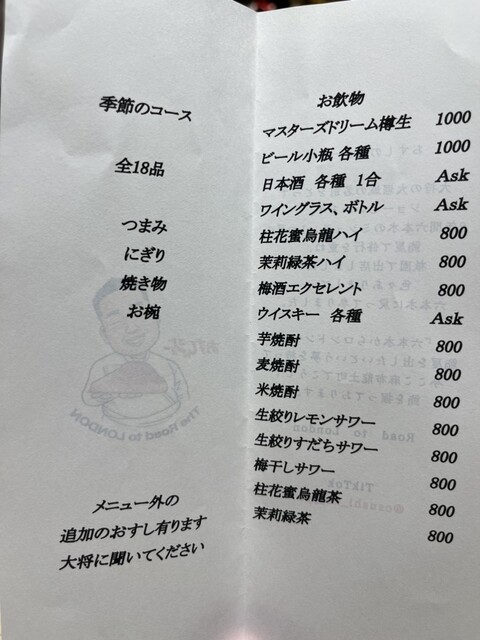 季節のコース
全18品
つまみ
にぎり
焼き物
お椀
メニュー外の
追加のおすし有ります
大将に聞いてください
お飲物
マスターズドリーム樽生 1000
ビール小瓶 各種 1000
日本酒 各種 1合 Ask
ワイングラス、ボトル Ask
柱花蜜烏龍ハイ 800
茉莉緑茶ハイ 800
梅酒エクセレント 800
ウイスキー 各種 Ask
芋焼酎 800
麦焼酎 800
米焼酎 800
生絞りレモンサワー 800
生絞りすだちサワー 800
梅干しサワー 800
柱花蜜烏龍茶 800
茉莉緑茶 800
The Road to LONDON
Road to London
TikTok